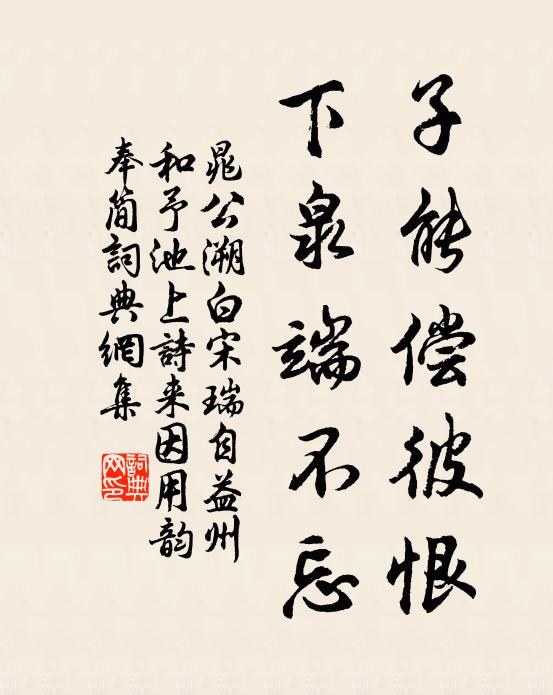 子能偿彼恨
下泉端不忘
晁公溯白宋瑞自益州
和予池上詩来因用韵
奉简詞典網集
詞典網印